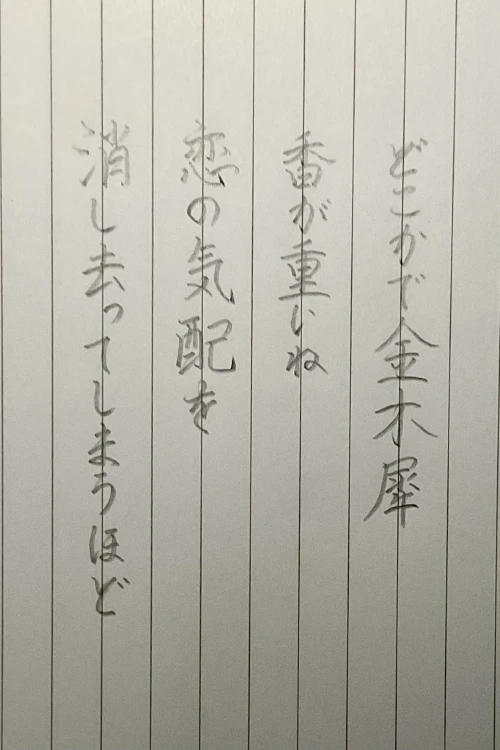 どこかで金木犀
香が重いね
恋の気配を
消し去ってしまうほど